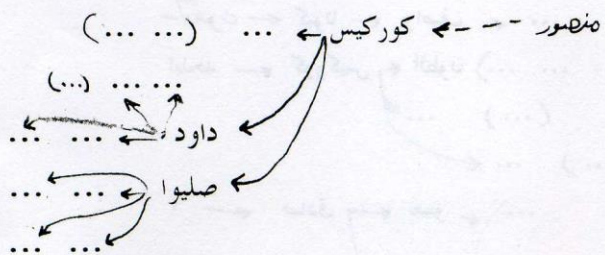 منصور --- كوركيس ... (... ...)
... ... (...)
داود ... ...
صليوا ... ...
... ...